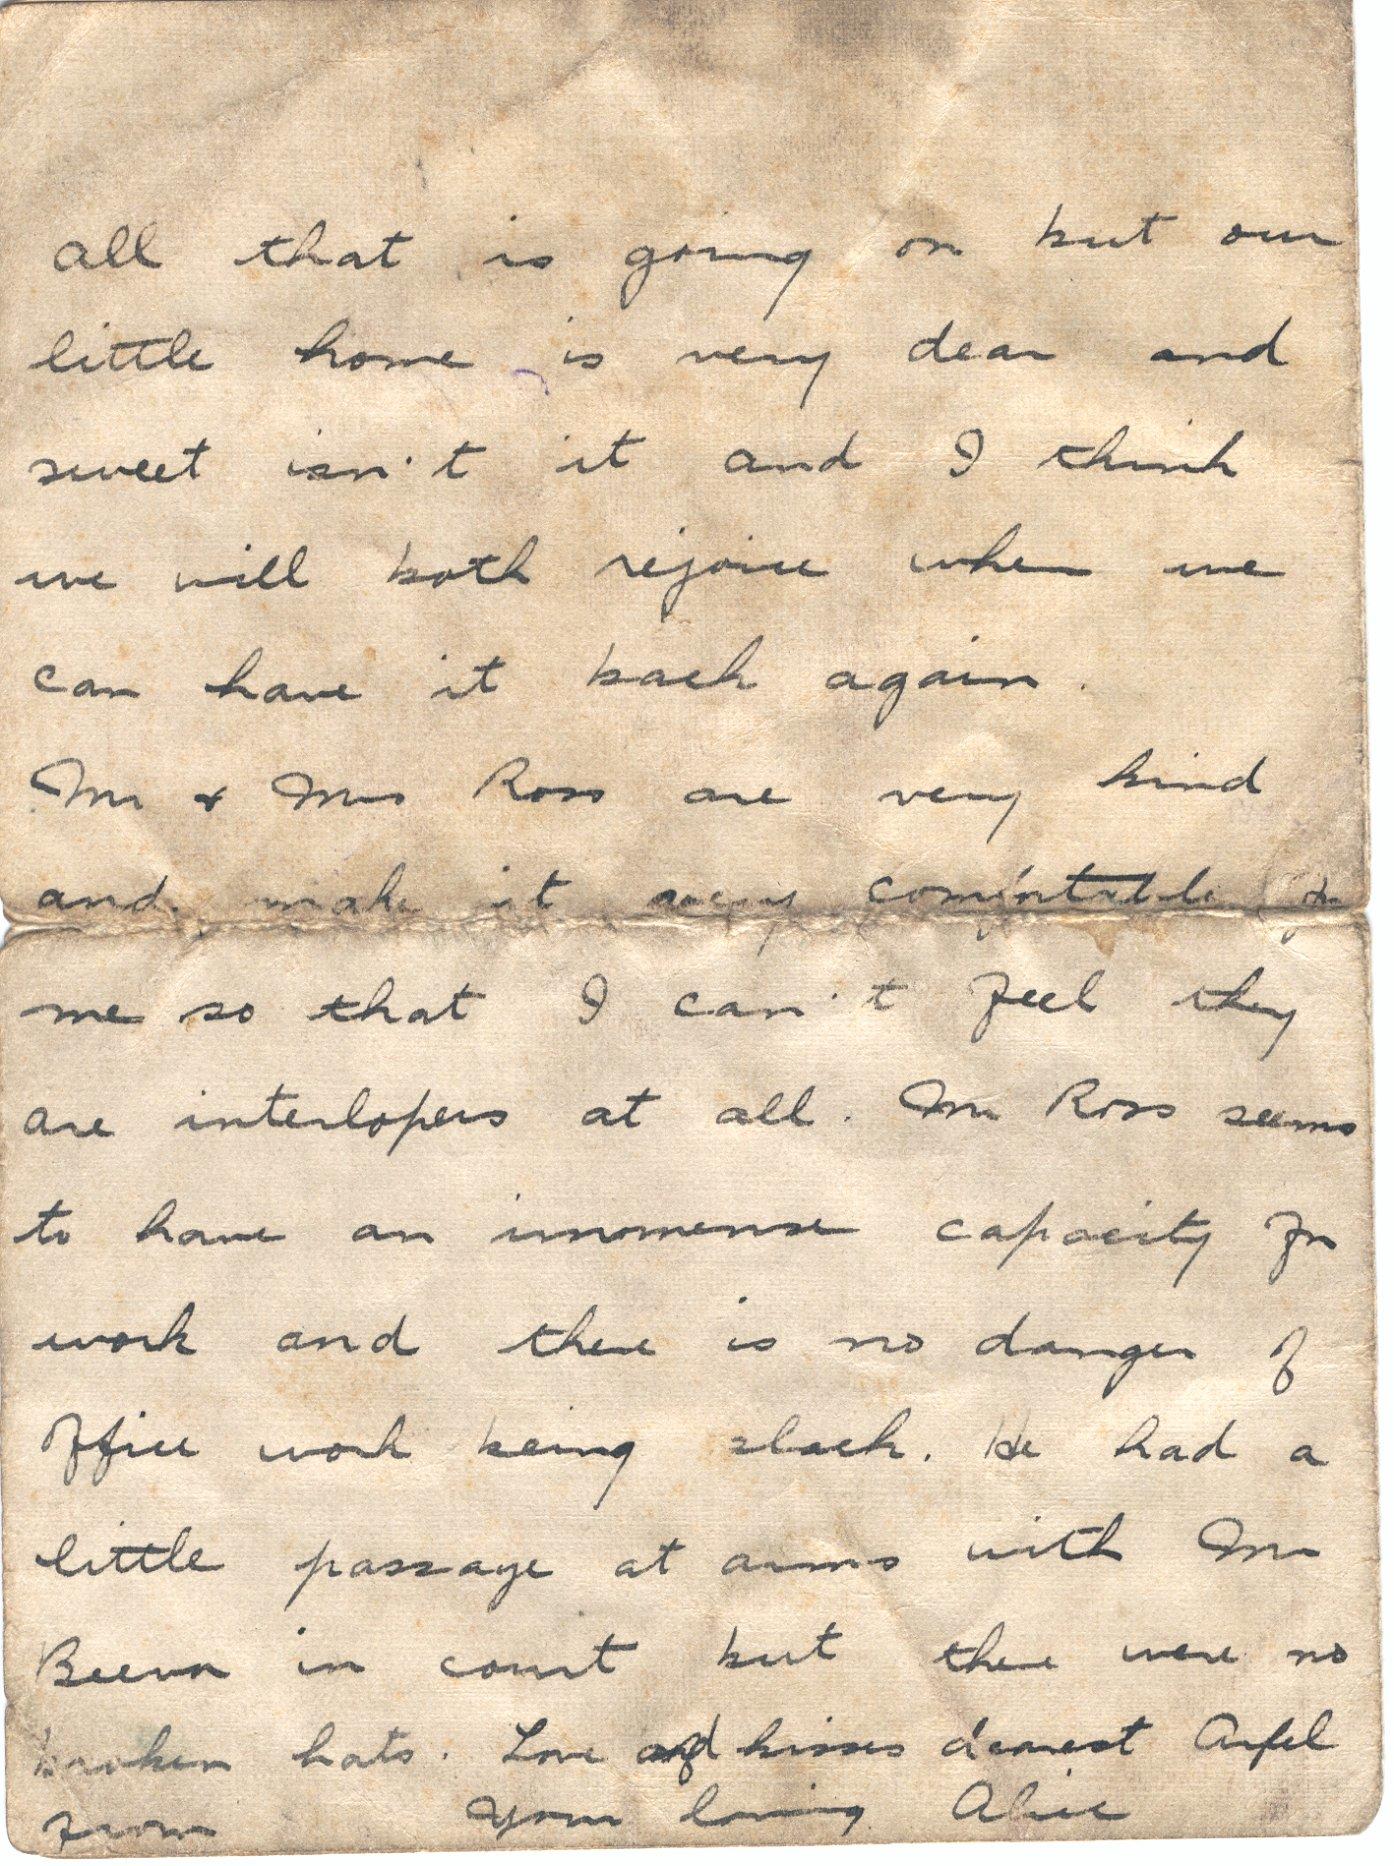 all that is going on but our
little home is very dear and
sweet isn't it and I think
we will both rejoice when we
can have it back again.
Mr & Mrs Ross are very kind
and make it very comfortable for
me so that I can't feel they
are interlopers at all. Mr Ross seems
to have an immense capacity for
work and there is no danger of
office work being slack. He had a
little passage at arms with Mr
in court but there were no
broken hats. Love and kisses dearest
from Your loving Alice